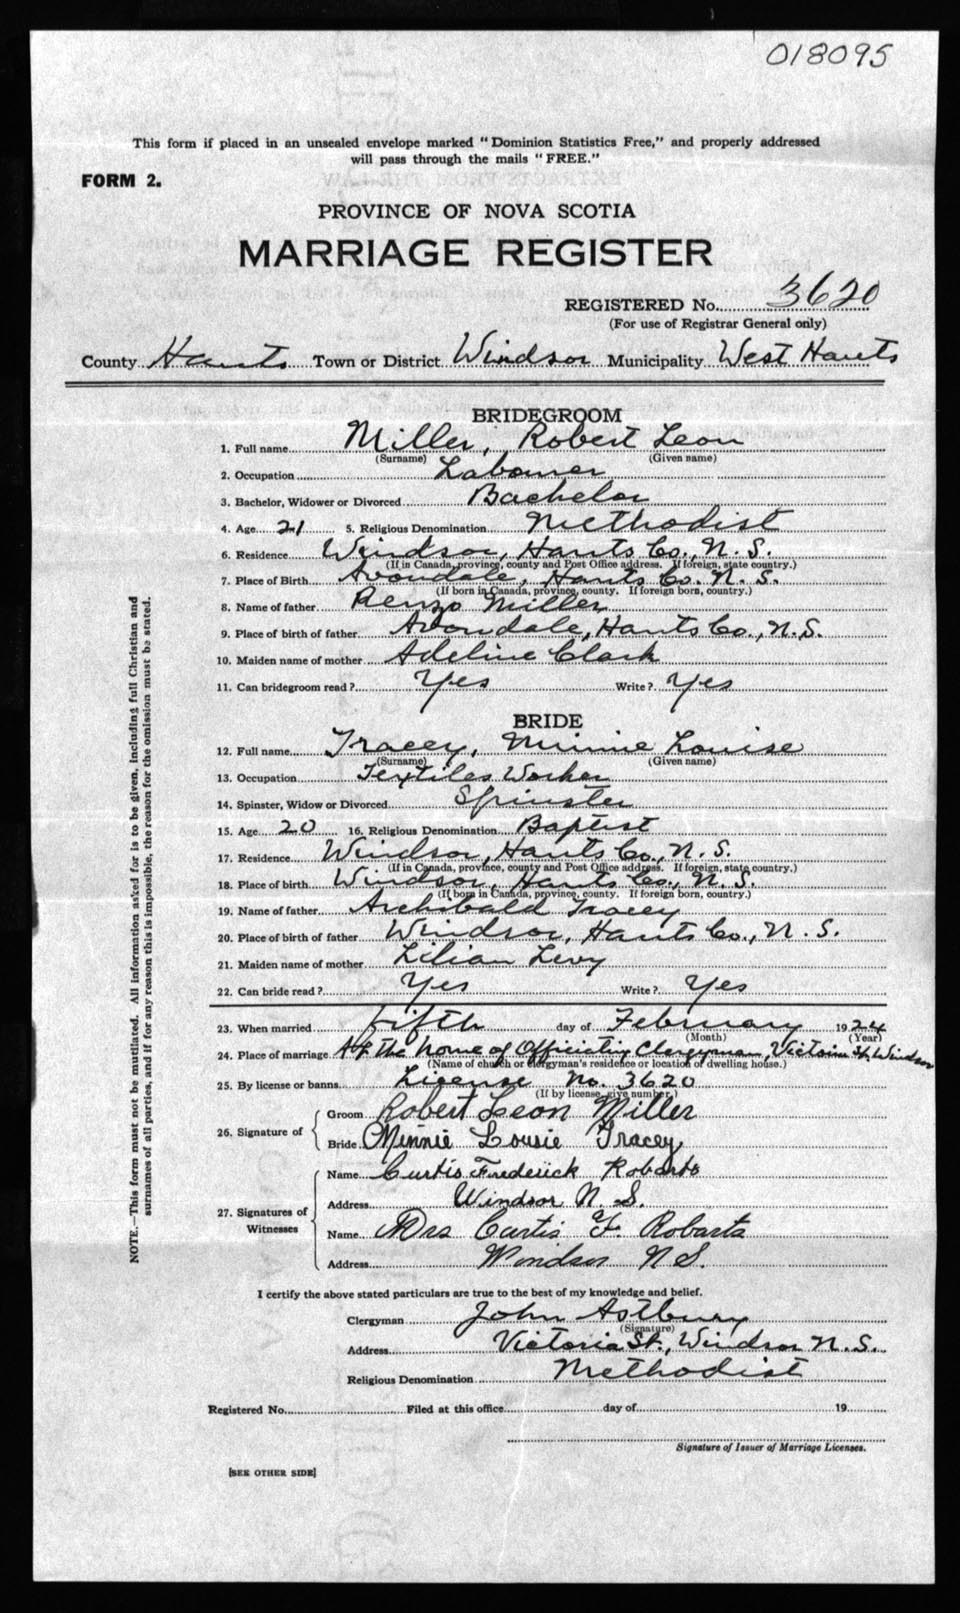 018095
This form if placed in an unsealed envelope marked "Dominion Statistics Free," and properly addressed
will pass through the mails "FREE."
FORM 2.
PROVINCE OF NOVA SCOTIA
MARRIAGE REGISTER
REGISTERED No. 3620
(For use of Registrar General only)
County Hants Town or District Windsor Municipality West Hants
BRIDEGROOM
1. Full name Miller, Robert Leon
(Surname) (Given name)
2. Occupation Labourer
3. Bachelor, Widower or Divorced Bachelor
4. Age 21 5. Religious Denomination Methodist
6. Residence Windsor, Hants Co., N.S.
(If in Canada, province, county and Post Office address. If foreign, state country.)
7. Place of Birth Avondale, Hants Co. N.S.
(If born in Canada, province, county. If foreign born, country.)
8. Name of father Renzo Miller
9. Place of birth of father Avondale, Hants Co., N.S.
10. Maiden name of mother Adeline Clark
11. Can bridegroom read? Yes Write? Yes
BRIDE
12. Full name Tracey, Minnie Louise
(Surname) (Given name)
13. Occupation Textiles Worker
14. Spinster, Widow or Divorced Spinster
15. Age 20 16. Religious Denomination Baptist
17. Residence Windsor, Hants Co., N.S.
(If in Canada, province, county and Post Office address. If foreign, state country.)
18. Place of birth Windsor, Hants Co., N.S.
(If born in Canada, province, county. If foreign born, country.)
19. Name of father Archibald Tracey
20. Place of birth of father Windsor, Hants Co., N.S.
21. Maiden name of mother Lilian Levy
22. Can bride read? Yes Write? Yes
23. When married fifth day of February 1924
(Month) (Year)
24. Place of marriage At the home of Officiating Clergyman, Victoria St, Windsor
(Name of church or clergyman's residence or location of dwelling house.)
25. By license or banns License No. 3620
(If by license, give number.)
26. Signature of Groom Robert Leon Miller
Bride Minnie Lousie Tracey
27. Signatures of Witnesses Name Curtis Frederick Robarts
Address Windsor N.S.
Name Mrs Curtis F. Robarts
Address Windsor N S.
I certify the above stated particulars are true to the best of my knowledge and belief.
Clergyman John Astbury
(Signature)
Address Victoria St., Windsor N.S.
Religious Denomination Methodist
Registered No. Filed at this office day of 19
Signature of Issuer of Marriage Licenses.
[SEE OTHER SIDE]
NOTE.—This form must not be mutilated. All information asked for is to be given, including full Christian and
surnames of all parties, and if for any reason this is impossible, the reason for the omission must be stated.